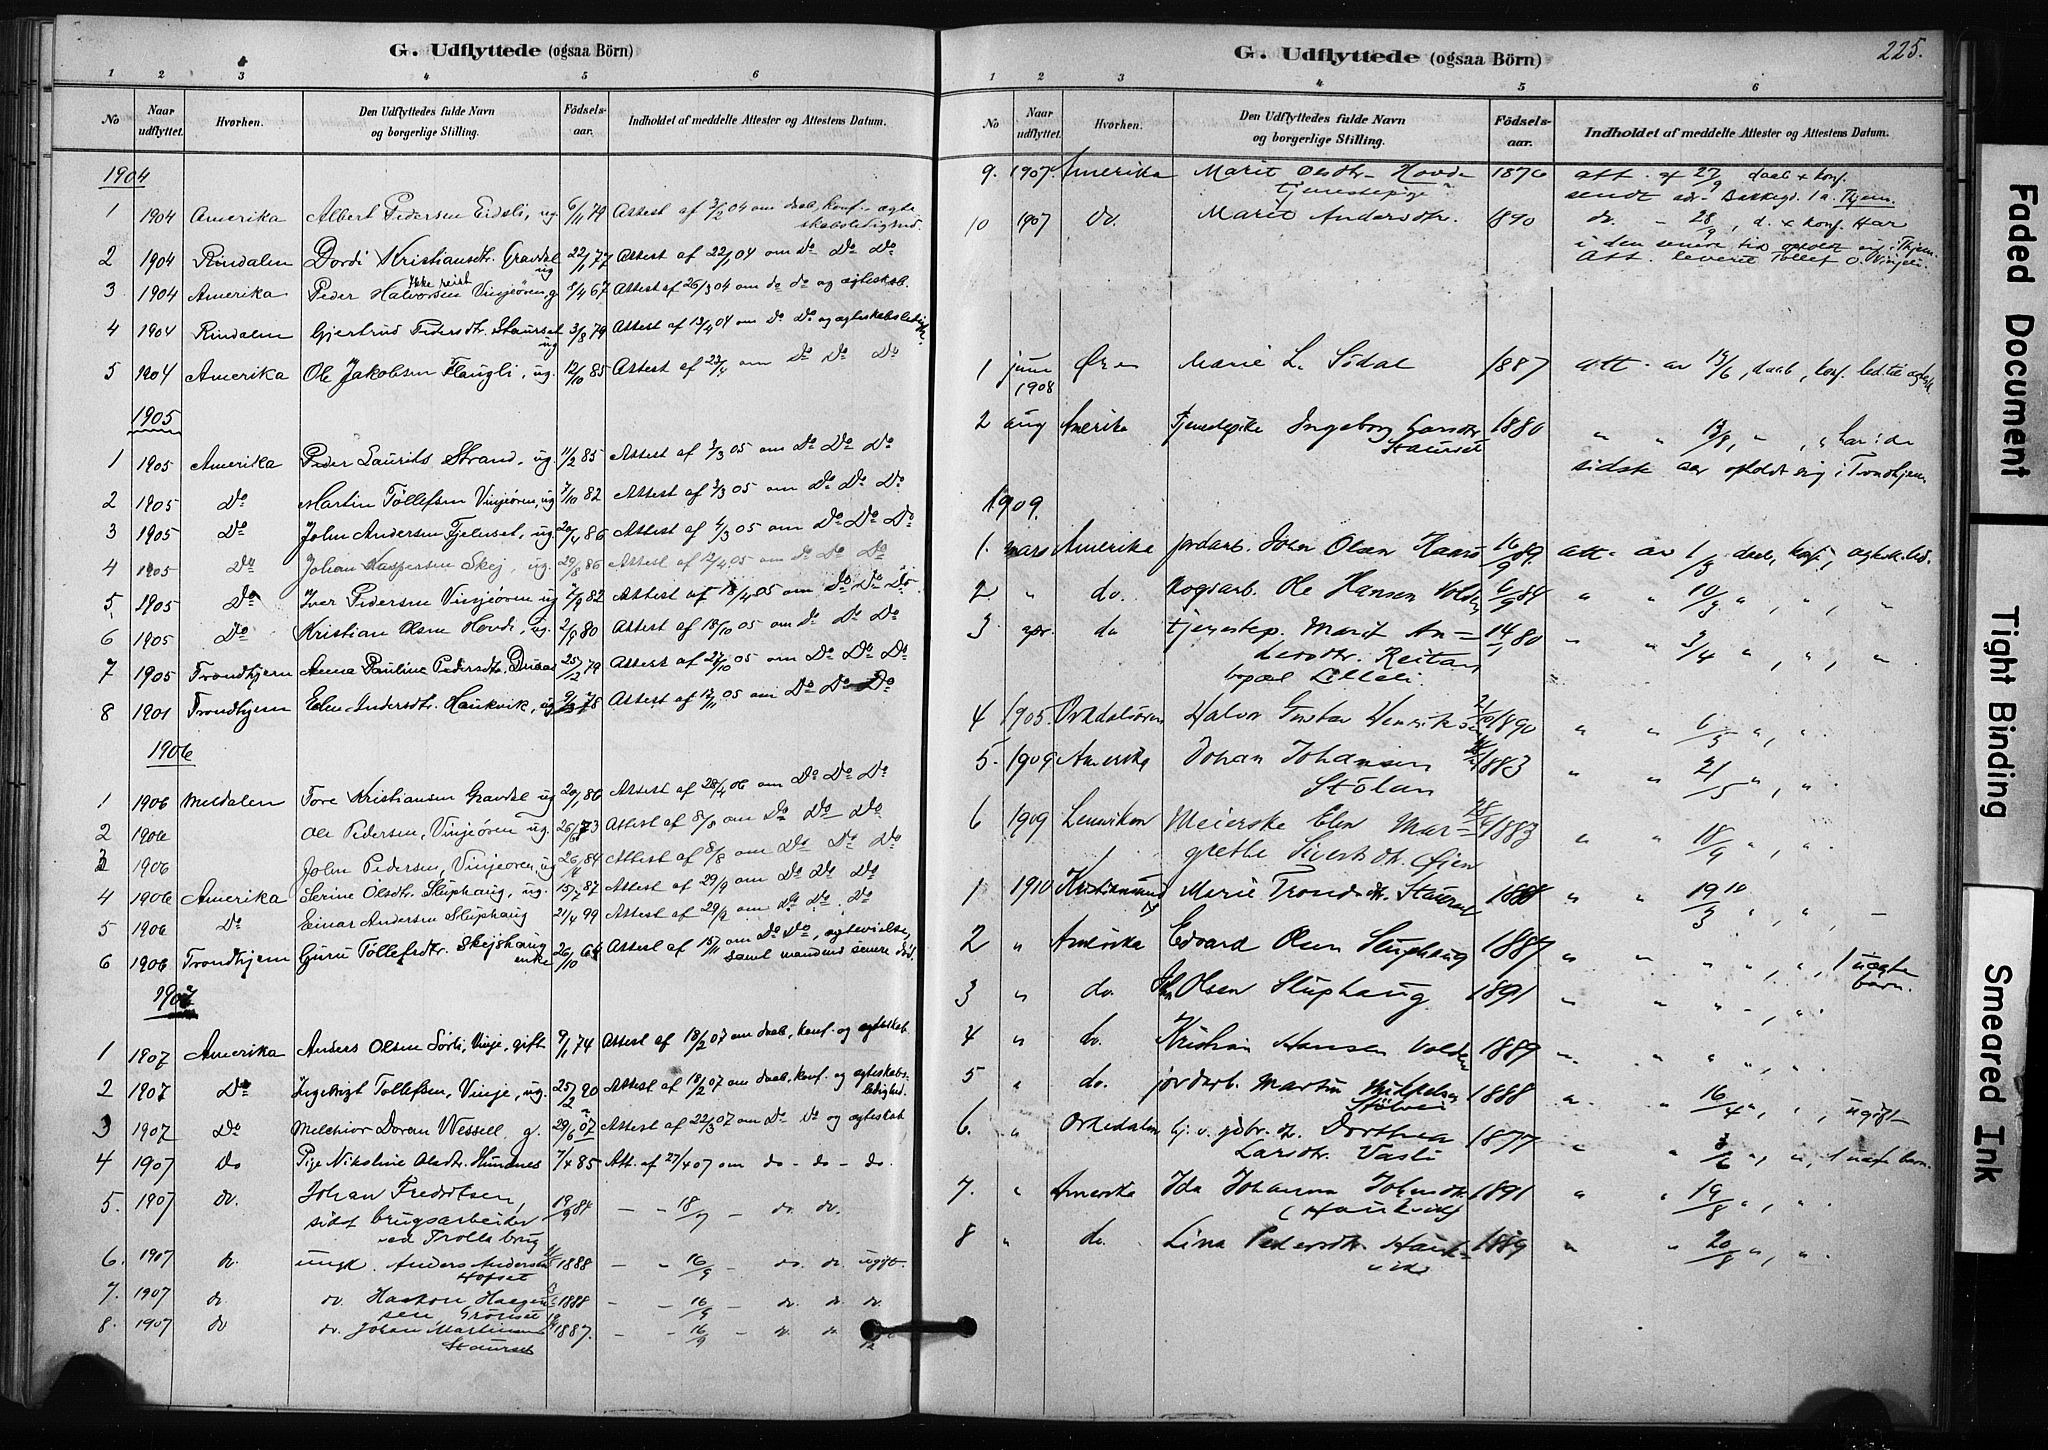 G. Udflyttede (ogsaa Börn)
1 2 3 4 5 6
No Naar udflyttet. Hvorhen. Den Udflyttedes fulde Navn og borgerlige Stilling. Födsels-aar. Indholdet af meddelte Attester og Attestens Datum.
1904
1 1904 Amerika Albert Pedersen Erdali, ug 6/11 79 Attest af 3/2 04 om daab, konf. ægte
skabsledighed.
2 1904 Rindalen Dordi Kristiansdtr. Gravdal 22/1 77 Attest af 22/1 04 om do Do Do
ug
Ikke reist
3 1904 Amerika Peder Halvorsen Vinjeören, g 8/4 67 Attest af 26/3 04 om do do og ægteskab.
4 1904 Rindalen Gjertrud Pedersdtr. Staurset 3/8 79 Attest af 13/4 04 om Do Do og ægteskabsledigh.
ug
5 1904 Amerika Ole Jakobsen Flaugli, ug. 12/10 85 Attest af 23/4 om Do Do Do
1905
1 1905 Amerika Peder Laurits Strand, ug. 11/2 85 Attest af 3/3 05 om Do Do Do
2 1905 Do Martin Tollefsen Vinjeören, ug 7/10 82 Attest af 3/3 05 om Do Do Do
3 1905 Do John Andersen Fjelnset, ug. 20/1 86 Attest af 4/3 05 om Do Do Do
4 1905 Do Johan Kaspersen Skej, ug. 29/8 86 Attest af 12/4 05 om Do Do Do
5 1905 Do Iver Pedersen Vinjeören ug 7/9 82 Attest af 18/4 05 om Do Do Do
6 1905 Do Kristian Olsen Hovde, ug. 2/9 80 Attest af 18/10 05 om do do Do
7 1905 Trondhjem Anna Pauline Pedersdtr. Druaas 25/12 79 Attest af 27/10 05 om Do Do Do
8 1901 Trondhjem Elen Andersdtr. Haukvik, ug 9/3 78 Attest af 17/11 05 om Do Do Do
1906
1 1906 Meldalen Tore Kristiansen Gravdal ug 20/1 86 Attest af 28/4 06 om Do Do Do
2 1906 Ole Pedersen, Vinjeören ug. 26/6 73 Attest af 8/8 om Do Do Do
3 1906 John Pedersen, Vinjeören, ug 26/4 84 Attest af 8/8 om Do Do Do
4 1906 Amerika Serine Olsdtr. Sluphaug, ug. 15/7 87 Attest af 29/9 om Do Do Do
5 1906 Do Einar Andersen Sluphaug 21/4 99 Attest af 29/9 om Do Do Do
6 1906 Trondhjem Guru Tollefsdtr. Skejshaug 26/10 64 Attest af 15/11 om Do Do, ægtevielse,
enke samt mandens senere död.
1907
1 1907 Amerika Anders Olsen Sörli, Vinje, gift 9/1 74 Attest af 18/2 07 om daab, konf. og ægteskab.
2 1907 Do Ingebrigt Tollefsen, Vinje, ug. 25/2 90 Attest af 18/2 07 om daab, konf. og ægteskabs-
ledighed.
3 1907 Do Melchior Doran Wessell, g. 29/6 07 Attest af 22/3 07 om Do Do og ægteskab
4 1907 Do Pige Nikoline Olsdtr. Hundnes 7/4 85 Att. af 27/4 07 om do - do - do.
5. 1907 do. Johan Fredriksen, 19/9 84 – „ 18/7 – do. do.
sidst brugsarbeider
ved Trolla brug
6. 1907 do. ungk. Anders Andersen 1888 – „ 16/9 – do. do. ugift.
Hofset
7. 1907 do do. Haakon Haagen- 1888 – „ 16/9 – do. do. do.
sen Grönset
8. 1907 do do. Johan Martinsen 1887. – „ 16/9 – do. do.
Staurset
G. Udflyttede (ogsaa Börn)
225.
1 2 3 4 5 6
No Naar udflyttet. Hvorhen. Den Udflyttedes fulde Navn og borgerlige Stilling. Födsels-aar. Indholdet af meddelte Attester og Attestens Datum.
9. 1907. Amerika Marit Olsdtr. Hovde 1876 att. af 27/9 daab & konf.
tjenestepige sendt adr. Bakkegd. 1 a. Thjem.
10 1907 do. Marit Andersdtr. 1890 do. - 28/9, d. & konf. Har
i den senere tid opholdt sig i Thjem.
Att. leveret Tollef O. Vinjeör.
1 juni Ören Marie L. Södal 1887 att. av 13/6, daab, konf. led. til ægtesk.
1908
2 aug Amerika Tjenestepike Ingeborg Larsdtr. 1880 „ „ 13/8, „ , „ har i de
Staurset sidste aar opholdt sig i Trondhjem
1909.
1. mars Amerika jordarb. John Olsen Hanss 16/9 89. att. av 1/3 daab, konf., ægtesk.led.
2 „ do. skogsarb. Ole Hansen Volden 6/9 84 „ „ 10/3 „ , „ , „
3 apr. do tjenestep. Marit An- 14/1 80 „ „ 3/4 „ , „ , „
dersdtr. Reitan
bopæl Lilleli.
4 1905. Orkdalsören Halvor Gustav Henriksen 21/10 1890 „ „ 6/5 „ , „ .
5. 1909 Amerika Johan Johansen 1883 „ „ 21/5 „ , „ .
Stölan
6 1909 Lensviken Meierske Elen Mar- 1883 „ „ 18/9 „ , „ .
grethe Sivertsdtr. Öien
1 1910 Kristiansund Marie Trondsdtr. Staurset 1888 „ „ 19/3 10 „ , „ , –
2 „ Amerika Edvard Olsen Sluphaug 1887 „ „ „ „ , „ , 1 uægte
barn.
3 „ do. Olsen Sluphaug 1891 „ „ „ - , „ .
4 „ do. Kristian Hansen Volden 1889 „ „ „ „ , „ .
5 „ do. jordarb. Martin Mikkelsen 1888 „ „ 16/4 „ , „ , ugift
Stölvei
6. „ Orkedalen tj. v. gdbr. dt. Dorthea 1877 „ „ 3/6 „ , „ , 1 uægte barn.
Larsdtr. Vasli
7. „ Amerika Ida Johanna Johnsdtr. 1891 „ „ 19/8 „ , „ .
(Haukvik)
8 „ do. Lina Pedersdtr. Hauk- 1889 „ „ 20/8 „ , „ .
vik
Faded Document
Tight Binding
Smeared Ink